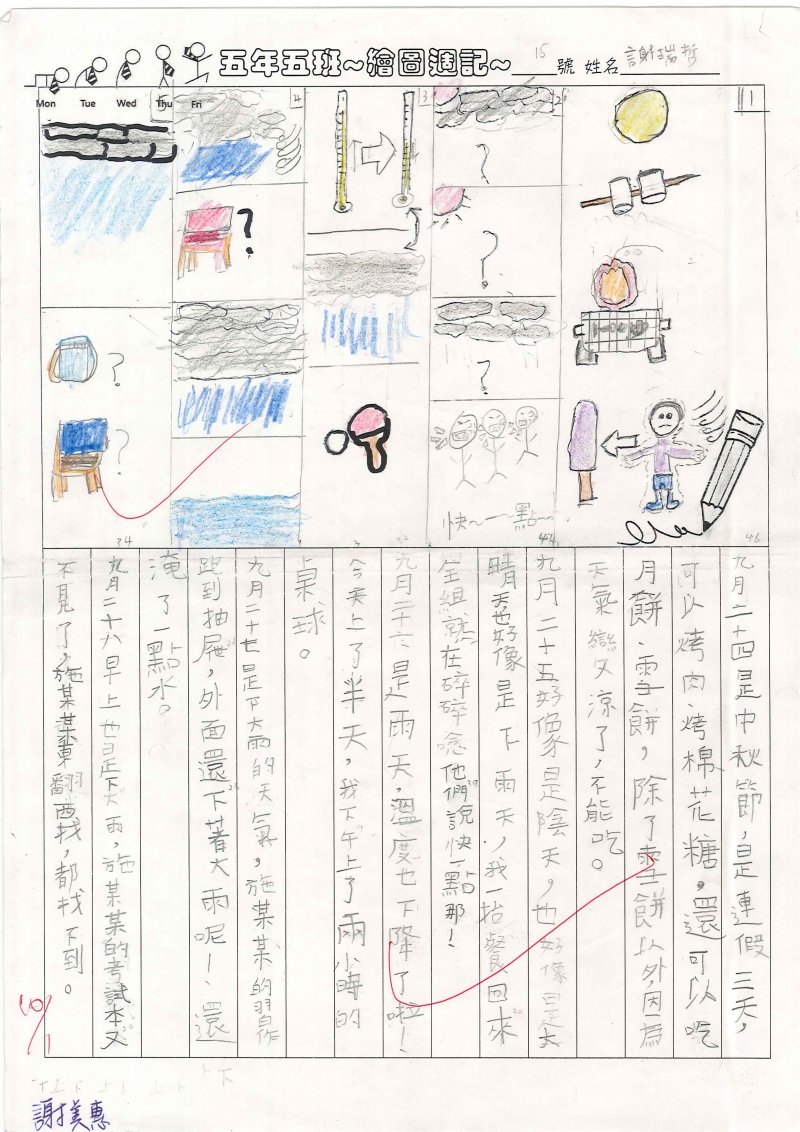 五年五班~繪圖週記~ 15 號 姓名 謝瑞哲
Mon Tue Wed Thu Fri
1
2
3
4
?
?
?
?
?
?
快~一點~
46
44
34
九月二十四是中秋節,是連假三天,
可以烤肉、烤棉花糖,還可以吃
月餅、雪餅,除了雪餅以外,因為
天氣變又涼了,不能吃。
九月二十五好像是陰天,也好像是大
晴天也好像是下雨天,我一抬餐回來
全組就在碎碎念他們說快一點那!
九月二十六是雨天,溫度也下降了啦!
今天上了半天,我下午上了兩小時的
桌球。
九月二十七是下大雨的天氣,施某某的習作
跑到抽屜,外面還下著大雨呢!還
淹了一點水。
九月二十八早上也是下大雨,施某某的考試本又
不見了,施某某東翻西找,都找不到。
10/1
謝美惠